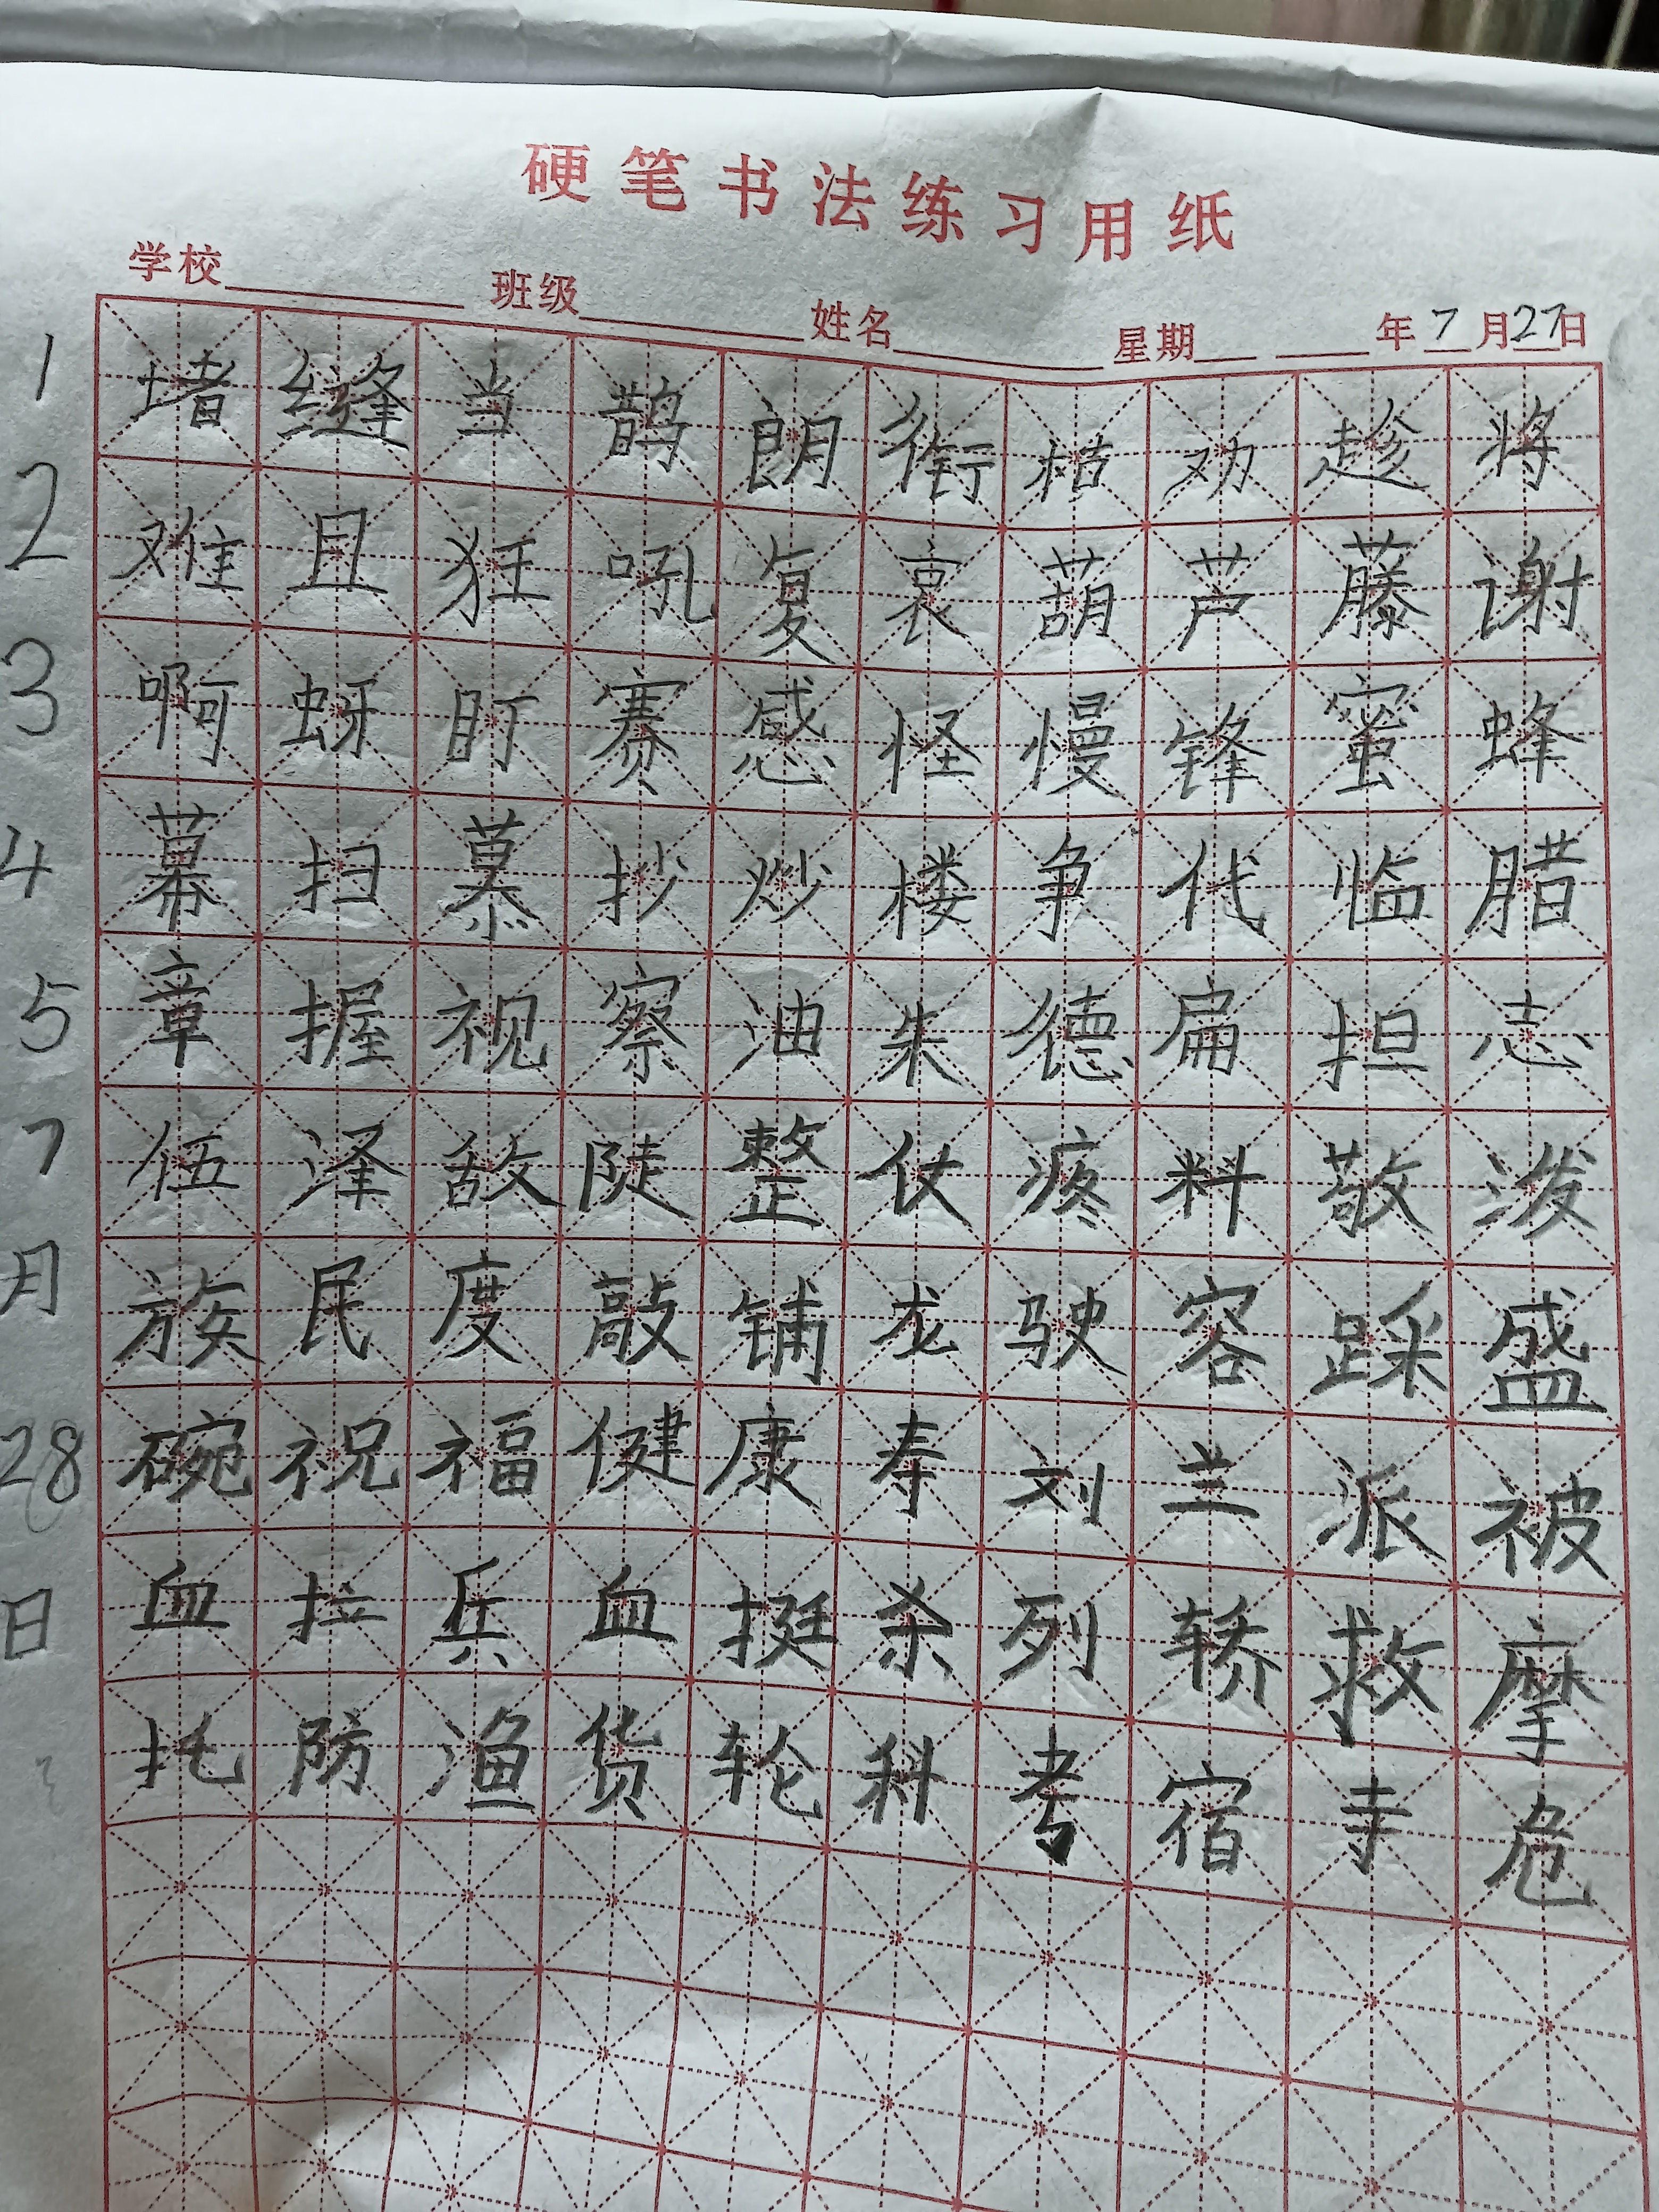 硬笔书法练习用纸
学校 班级 姓名 星期 年7月27日
1 堵缝当鹊朗衔枯劝趁将
2 难且狂吼复哀葫芦藤谢
3 啊蚜盯赛感怪慢锋蜜蜂
4 幕扫慕抄炒楼争代临腊
5 章握视察油朱德扁担志
7 伍泽敌陡整仗疼料敬泼
月 族民度敲铺龙驶容踩盛
28 碗祝福健康寿刘兰派被
日 血拉兵血挺杀列轿救摩
托防渔货轮科考宿寺危